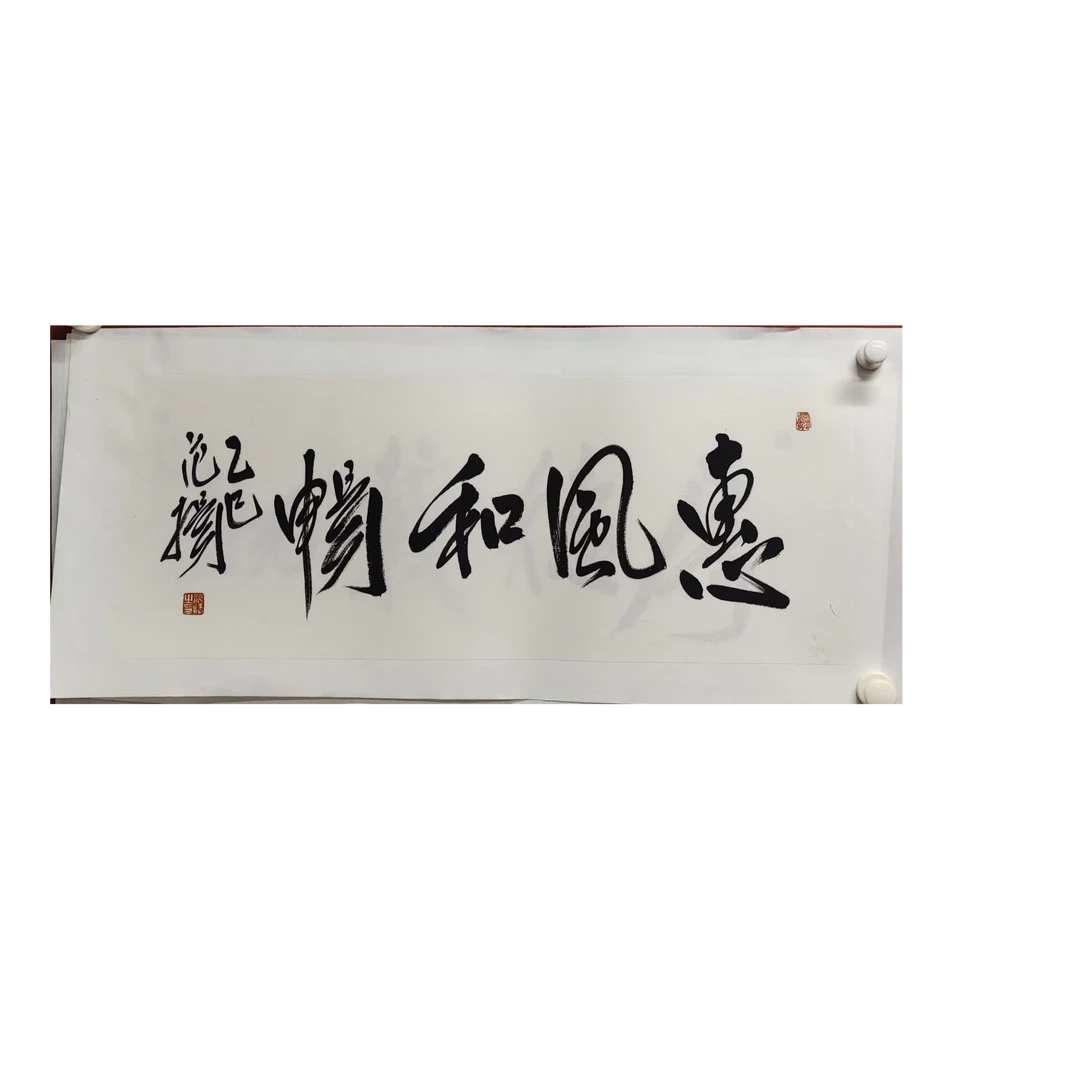 惠風和暢
乙巳
范